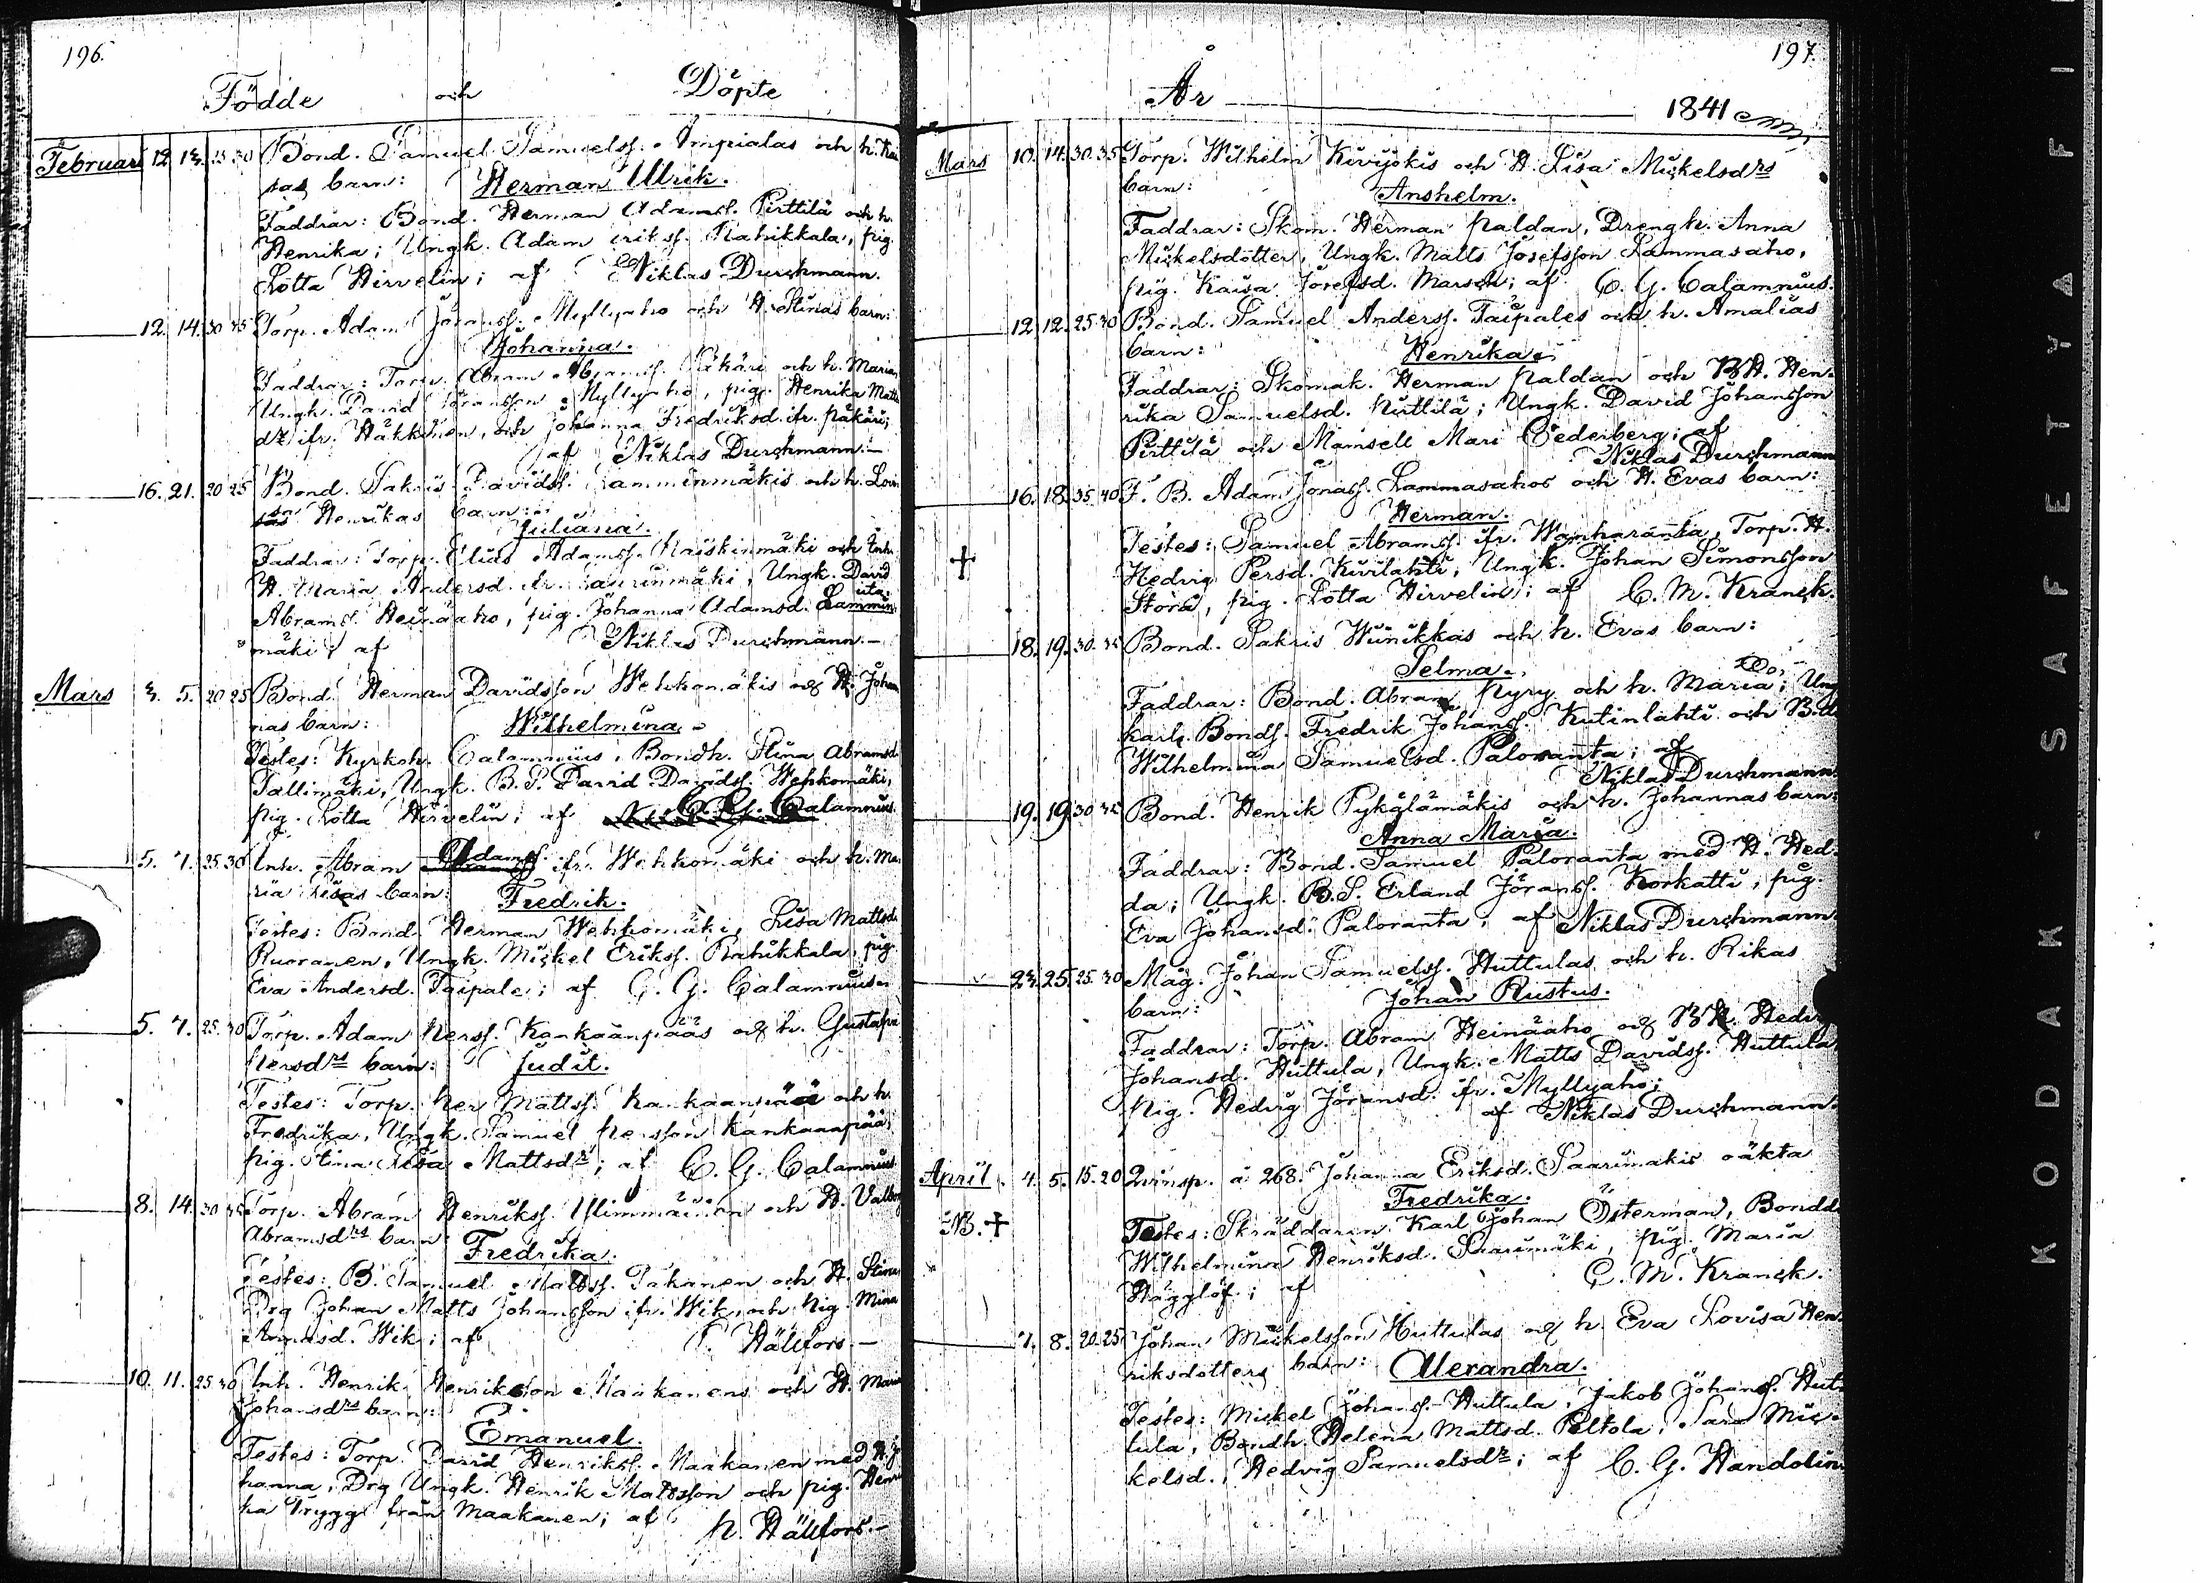 196.
Födde och Döpte
Februari 12. 13. 25 30 Bond. Samuel Samuelss. Impialas och h. Kai
sas barn: Herman Ulrik.
Faddrar: Bond. Herman Adamss. Pirttilä och h.
Henrika; Ungk. Adam Erikss. Rahikkala, pig.
Lotta Hirvelin; af Niklas Durchmann.
12. 14. 30 35 Torp. Adam Joranss. Myllyaho och H. Stinas barn:
Johanna.
Faddrar: Torp. Abram Abramss. Päkäri och h. Maria,
Ungk. David Joransson Myllyaho, pig. Henrika Matts
dr ifr. Häkkinen, och Johanna Fredriksd. ifr. Päkäri;
af Niklas Durchmann.-
16. 21. 20 25 Bond. Sakris Davidss. Lamminmäkis och h. Lovi
Henrikas barn:
Juliana.
Faddrar: Torp. Elias Adamss. Raiskinmäki och Inh.
H. Maria Andersd. ifr. Saurinmäki, Ungk. David
Abramss. Heinäaho, pig. Johanna Adamsd. Lammin
mäki; af Niklas Durchmann.-
Mars 3. 5. 20 25 Bond. Herman Davidsson Wehkomäkis och H. Johan
nas barn: Wilhelmina.
Testes: Kyrkoh. Calamnius, Bondh. Stina Abramsd.
Tallimäki, Ungk. B. S. David Davidss. Wehkomäki,
pig. Lotta Hirvelin; af C. G. Calamnius.
5. 7. 25. 30 Inh. Abram Adamss. ifr. Wehkomäki och h. Ma
ria Lisas barn: Fredrik.
Testes: Bond. Herman Wehkomäki, Lisa Mattsd.
Ruoranen, Ungk. Mickel Erikss. Rahikkala, pig.
Eva Andersd. Taipale; af C. G. Calamnius.
5. 7. 25. 30 Torp. Adam Perss. Kankaanpääs och h. Gustafva
Persdrs barn: Judit.
Testes: Torp. Per Mattss. Kankaanpää och h.
Fredrika, Ungk. Samuel Persson Kankaanpää,
pig. Stina Lisa Mattsdr; af C. G. Calamnius
8. 14. 30 35 Torp. Abram Henrikss. Ylimmäinen och H. Valborg
Abramsdrs barn Fredrika.
Testes: B. Samuel Mattss. Pakanen och H. Stina
Drg Johan Matts Johansson ifr. Wik, och Pig. Mina
Wik; af P. Hällfors.-
10. 11. 25 30 Inh. Henrik Henriksson Maakanens och H. Maria
Johansdrs barn:
Emanuel.
Testes: Torp. David Henrikss. Maakanen med H. Jo
hanna, Drg Ungk. Henrik Mattsson och pig. Henri
ka Trygg från Maakanen; af P. Hällfors.-
197.
År 1841
Mars 10. 14. 30. 35 Torp. Wilhelm Kivijokis och H. Lisa Mickelsdrs
barn: Anshelm.
Faddrar: Skom. Herman Paldan, Drengh. Anna
Mickelsdotter, Ungk. Matts Josefsson Lammasaho,
pig. Kaisa Josefsd. Marsch; af C. G. Calamnius.
12. 12. 25 30 Bond. Samuel Anderss. Taipales och h. Amalias
barn: Henrika.
Faddrar: Skomak. Herman Paldan och BH. Hen-
rika Samuelsd. Pirttilä; Ungk. David Johansson
Pirttilä och Mamsell Mari Cederberg; af
Niklas Durchmann
16. 18. 35 40 F. B. Adam Jonass. Lammasahos och H. Evas barn:
Herman.
Testes: Samuel Abramss. ifr. Wanharanta, Torp. H.
Hedvig Persd. Kivilahti, Ungk. Johan Simonsson
Stora, pig. Lotta Hirvelin; af C. M. Kranck.
18. 19. 30. 35 Bond. Sakris Wiinikkas och h. Evas barn:
Selma.
Faddrar: Bond. Abram Pyry och h. Maria; Ung
karl. Bonds. Fredrik Johanss. Kutinlahti och B.d.
Wilhelmina Samuelsd. Paloranta; af
Niklas Durchmann.
19. 19. 30 35 Bond. Henrik Pykälämäkis och h. Johannas barn:
Anna Maria.
Faddrar: Bond. Samuel Paloranta med H. Hed-
da; Ungk. B. S. Erland Jöranss. Korkatti, pig.
Eva Johansd. Paloranta; af Niklas Durchmann.
23. 25. 25. 30 Måg. Johan Samuelss. Huttulas och h. Rikas
barn: Johan Rustus.
Faddrar: Torp. Abram Heinäaho och BH. Hedvig
Johansd. Huttula, Ungk. Matts Davidss. Huttula,
Pig. Hedvig Joransd. ifr. Myllyaho;
af Niklas Durchmann.
April 4. 5. 15. 20 Qvinsp. å 268. Johanna Eriksd. Saarimäkis oäkta
NB. + Fredrika.
Testes: Skräddaren Karl Johan Österman, Bondd.
Wilhelmina Henriksd. Saarimäki, pig. Maria
Hägglöf; af C. M. Kranck.
7. 8. 20. 25 Johan Mickelsson Huttulas och h. Eva Lovisa Hen-
riksdotters barn: Alexandra.
Testes: Mickel Johanss. Huttula, Jakob Johanss. Hut-
tula, Bondh. Helena Mattsd. Peltola, Sara Mic-
kelsd., Hedvig Samuelsdr; af C. G. Handolin
KODAK · SAFETY A FI